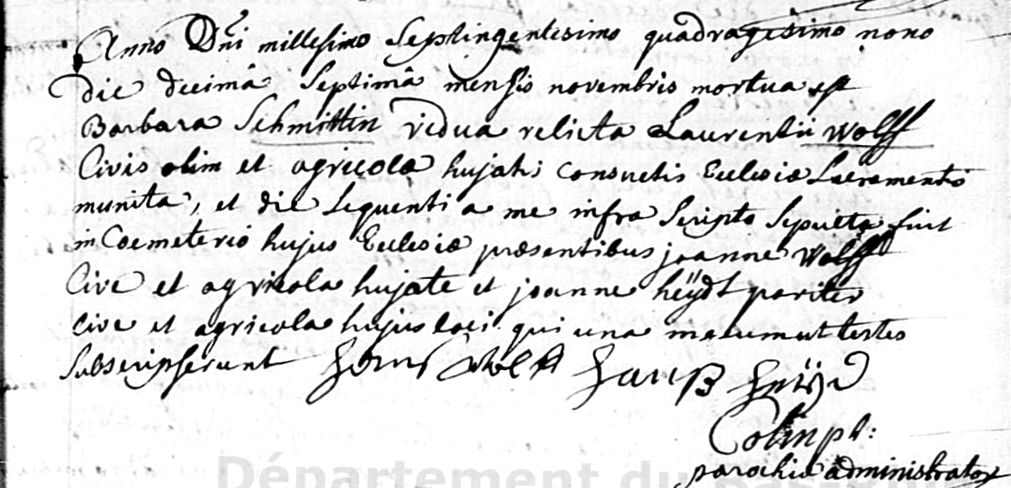 Anno Dni millesimo Septingentesimo quadragesimo nono
die decimâ Septimâ mensis novembris mortua est
Barbara Schmittin vidua relicta Laurentii Wolff
Civis olim et agricolæ hujatis consuetis Ecclesiæ Sacramentis
munita, et die sequenti a me infra Scripto Sepulta fuit
in Coemeterio hujus Ecclesiæ præsentibus joanne Wolff
Cive et agricola hujate et joanne heÿdt pariter
cive et agricola hujus loci qui una mecum ut testes
Subscripserunt hans wolff hanß heÿd
Colin pt:
parochiæ administrator
Département du Bas